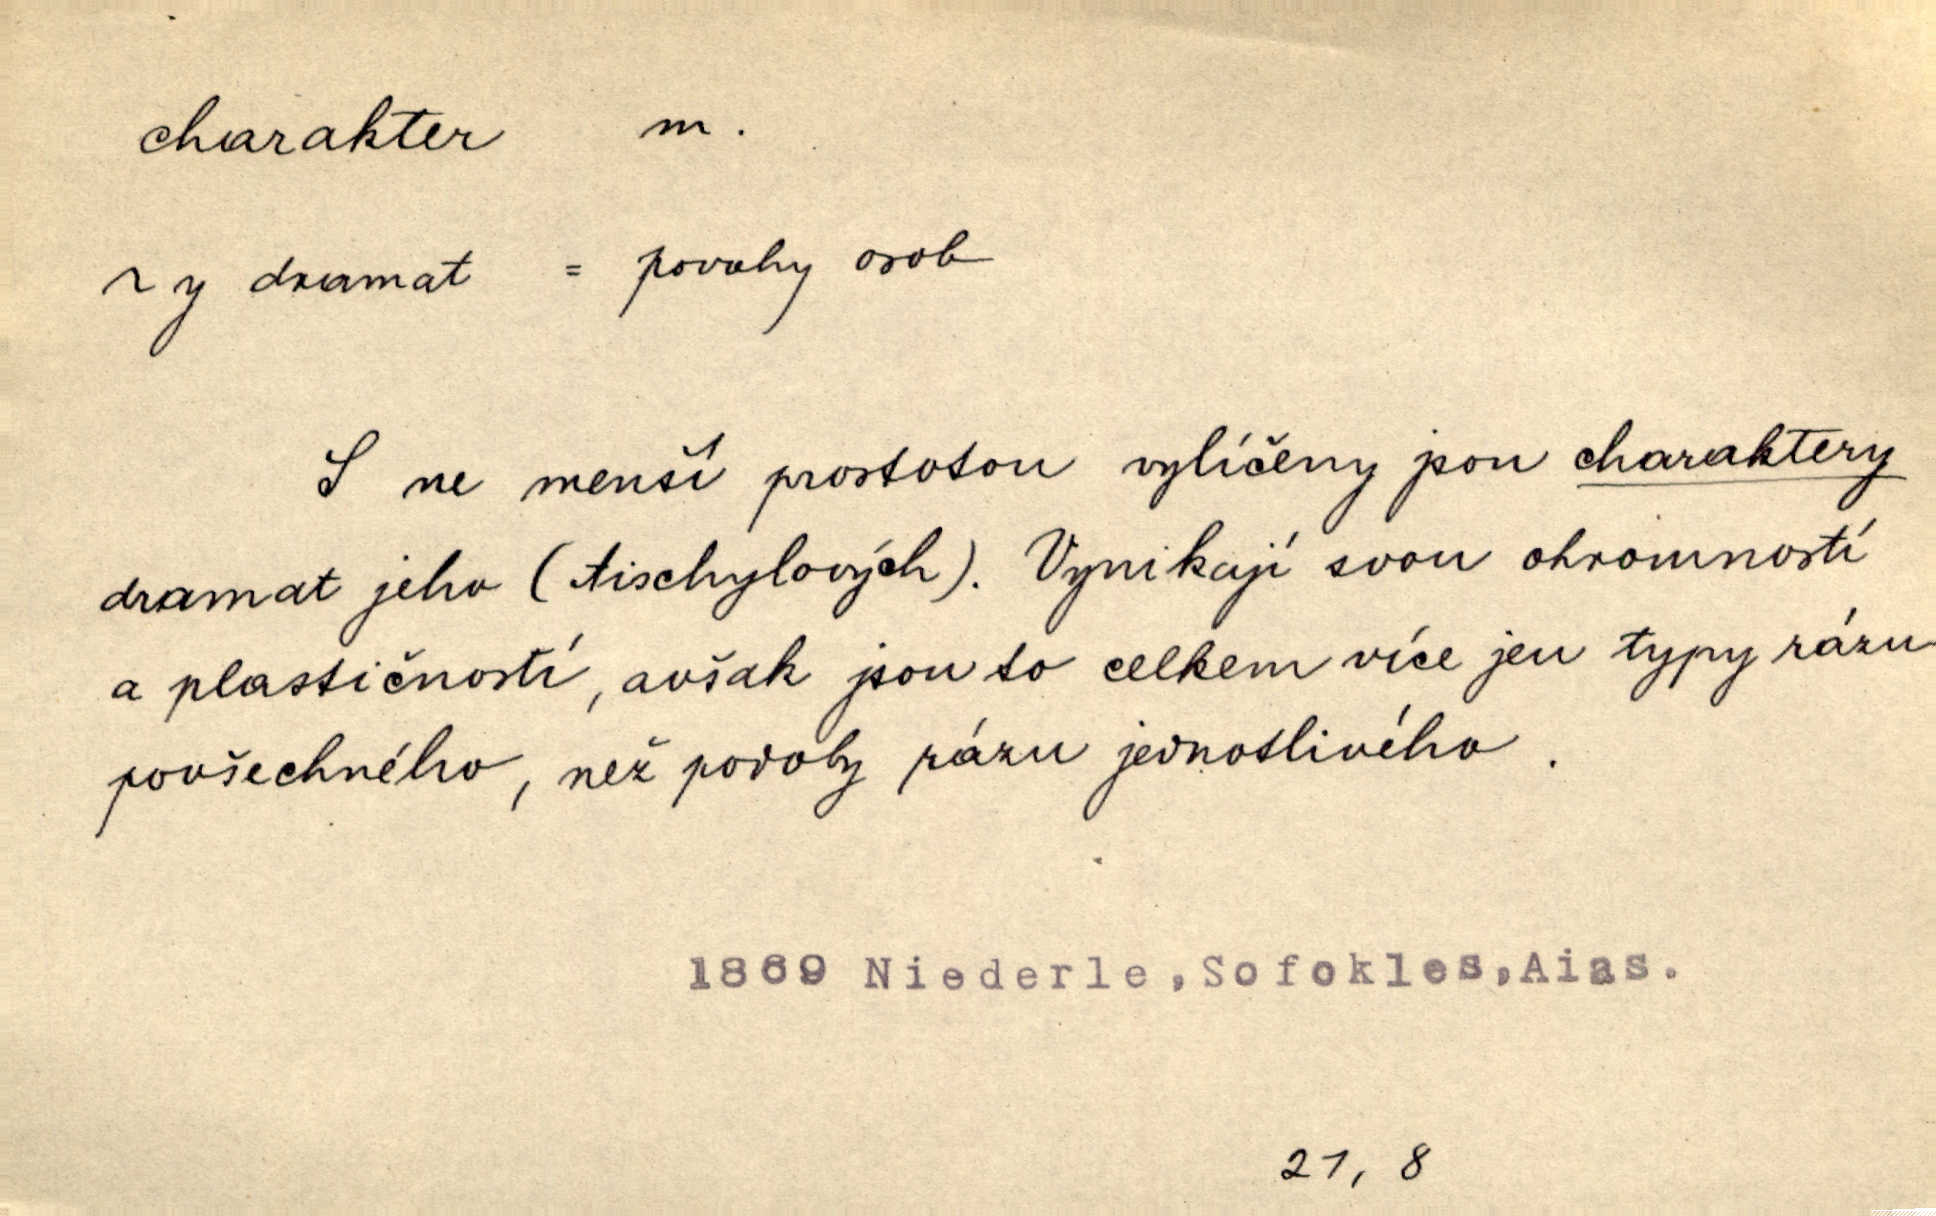 charakter m.
~y dramat = povahy osob
S ne menší prostotou vylíčeny jsou charaktery
dramat jeho (Aischylových). Vynikají svou ohromností
a plastičností, avšak jsou to celkem více jen typy rázu
povšechného, než podoby rázu jednotlivého.
1869 Niederle,Sofokles,Aias.
21, 8